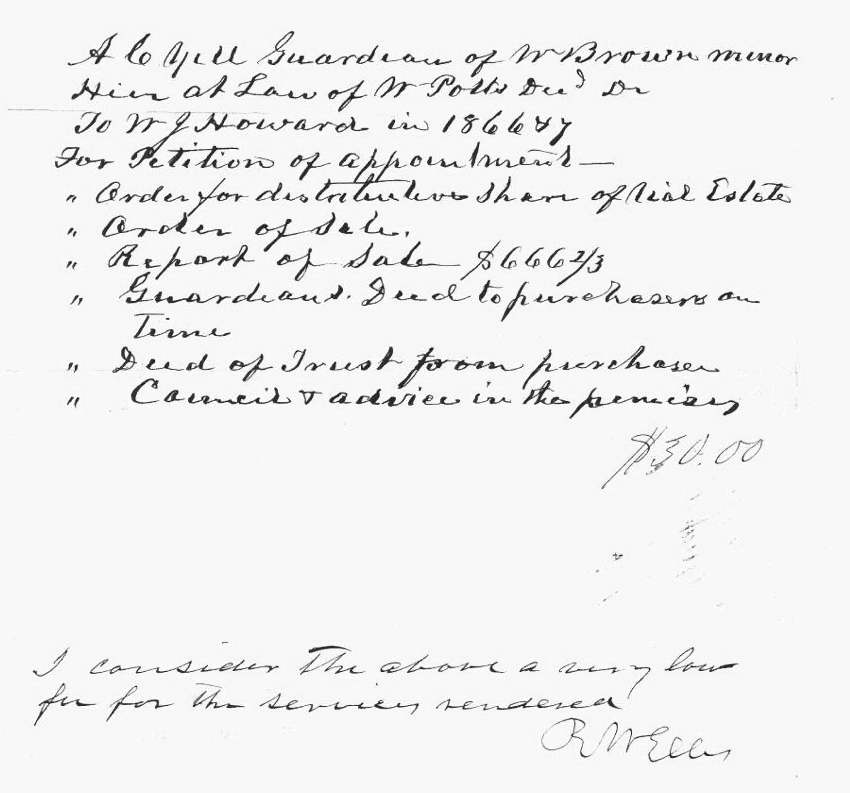 A C Yell Guardean of W Brown minor
Hier at Law of W Potts Decd Dr
To W J Howard in 1866 & 7
For Petition of appointment —
" Order for distributive Share of Real Estate
" Order of Sale.
" Report of Sale $666 2/3
" Guardeans. Deed to purchasers on
Time
" Deed of Trust from purchaser
" Council & advice in the premises
$30.00
I consider the above a very low
fee for the services rendered
R W Ellis